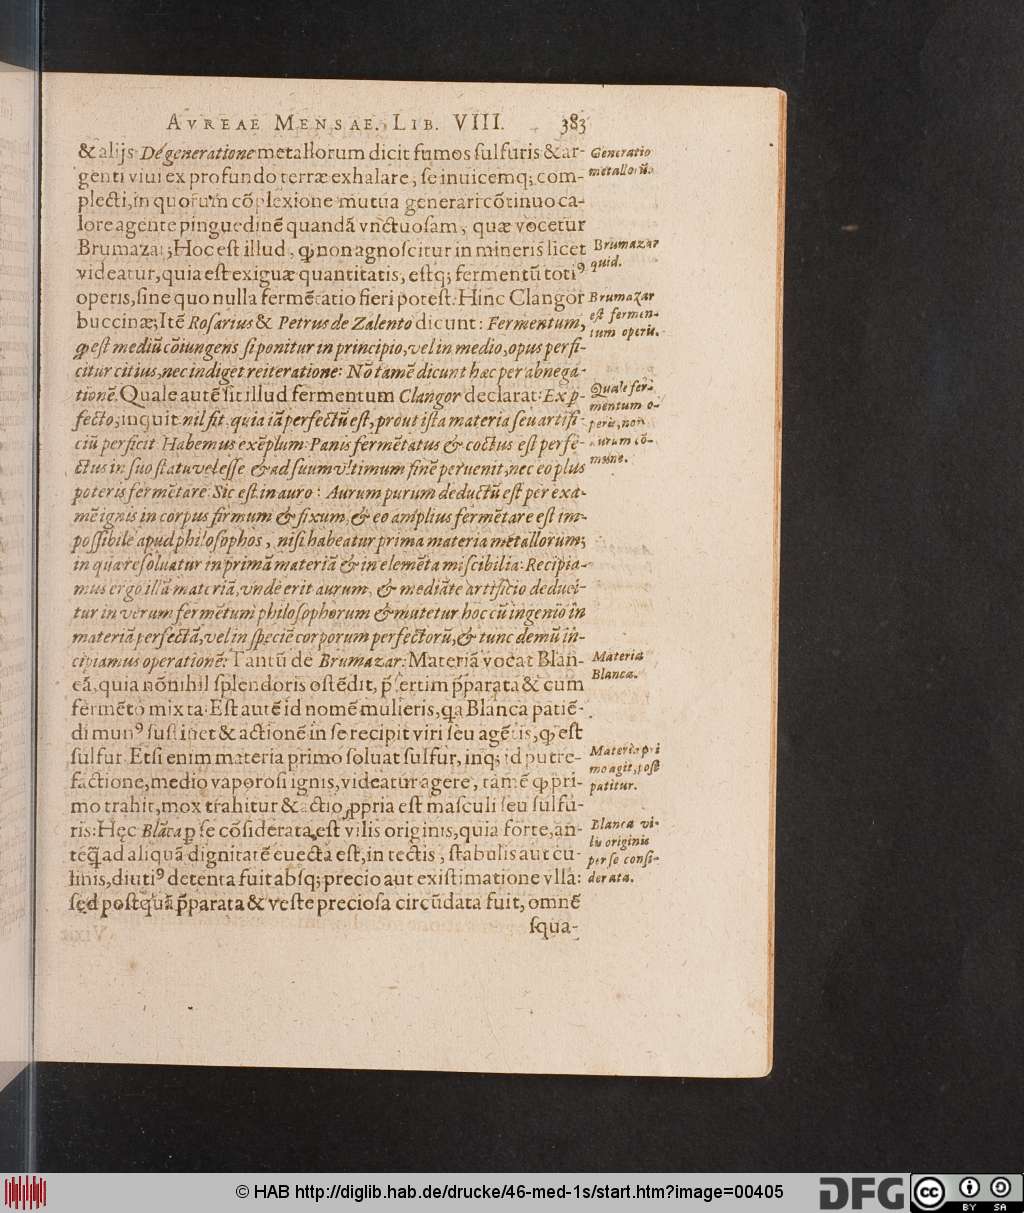 AVREAE MENSAE. LIB. VIII. 383
& alijs De generatione metallorum dicit fumos sulfuris & ar-
genti viui ex profundo terræ exhalare, se inuicemq; com-
plecti, in quorum cõplexione mutua generari cõtinuo ca-
lore agente pinguedinẽ quandã vnctuosam, quæ vocetur
Brumazar; Hoc est illud, ꝙ non agnoscitur in mineris licet
videatur, quia est exiguæ quantitatis, estq; fermentũ totiꝰ
operis, sine quo nulla fermẽtatio fieri potest. Hinc Clangor
buccinæ; Itẽ Rosarius & Petrus de Zalento dicunt: Fermentum,
ꝙ est mediũ cõiungens si ponitur in principio, vel in medio, opus perfi-
citur citius, nec indiget reiteratione: Nõ tamẽ dicunt hæc per abnega-
tionẽ. Quale autẽ sit illud fermentum Clangor declarat: Ex ꝑ-
fecto, inquit nil fit, quia iã perfectũ est, prout ista materia seu artifi-
ciũ perficit. Habemus exẽplum: Panis fermẽtatus & coctus est perfe-
ctus in suo statu vel esse & ad suum vltimum finẽ peruenit, nec eo plus
poteris fermẽtare: Sic est in auro: Aurum purum deductũ est per exa-
mẽ ignis in corpus firmum & fixum, & eo amplius fermẽtare est im-
possibile apud philosophos, nisi habeatur prima materia metallorum;
in qua resoluatur in primã materiã & in elemẽta miscibilia: Recipia-
mus ergo illã materiã, vnde erit aurum, & mediãte artificio deduci-
tur in verum fermẽtum philosophorum & mutetur hoc cũ ingenio in
materiã perfectã, vel in speciẽ corporum perfectorũ, & tunc demũ in-
cipiamus operationẽ: Tantũ de Brumazar: Materiã vocat Blan-
cã, quia nõnihil splendoris ostẽdit, p̃sertim p̃parata & cum
fermẽto mixta. Est autẽ id nomẽ mulieris, qa Blanca patiẽ-
di munꝰ sustinet & actionẽ in se recipit viri seu agẽtis, ꝙ est
sulfur. Etsi enim materia primo soluat sulfur, inq; id putre-
factione, medio vaporosi ignis, videatur agere, tamẽ ꝙ pri-
mo trahit, mox trahitur & actio ꝓpria est masculi seu sulfu-
ris: Hęc Blãca ꝑ se cõsiderata est vilis originis, quia forte, an-
teq̃ ad aliquã dignitatẽ euecta est, in tectis, stabulis aut cu-
linis, diutiꝰ detenta fuit absq; precio aut existimatione vlla:
sed postquã p̃parata & veste preciosa circũdata fuit, omnẽ
squa-
Generatio
metallorũ.
Brumazar
quid.
Brumazar
est fermen-
tum operis.
Quale fer-
mentum o-
peris, non
aurum cõ-
mune.
Materia
Blanca.
Materia pri
mo agit, post
patitur.
Blanca vi-
lis originis
per se consi-
derata.
© HAB http://diglib.hab.de/drucke/46-med-1s/start.htm?image=00405
DFG
cc BY SA